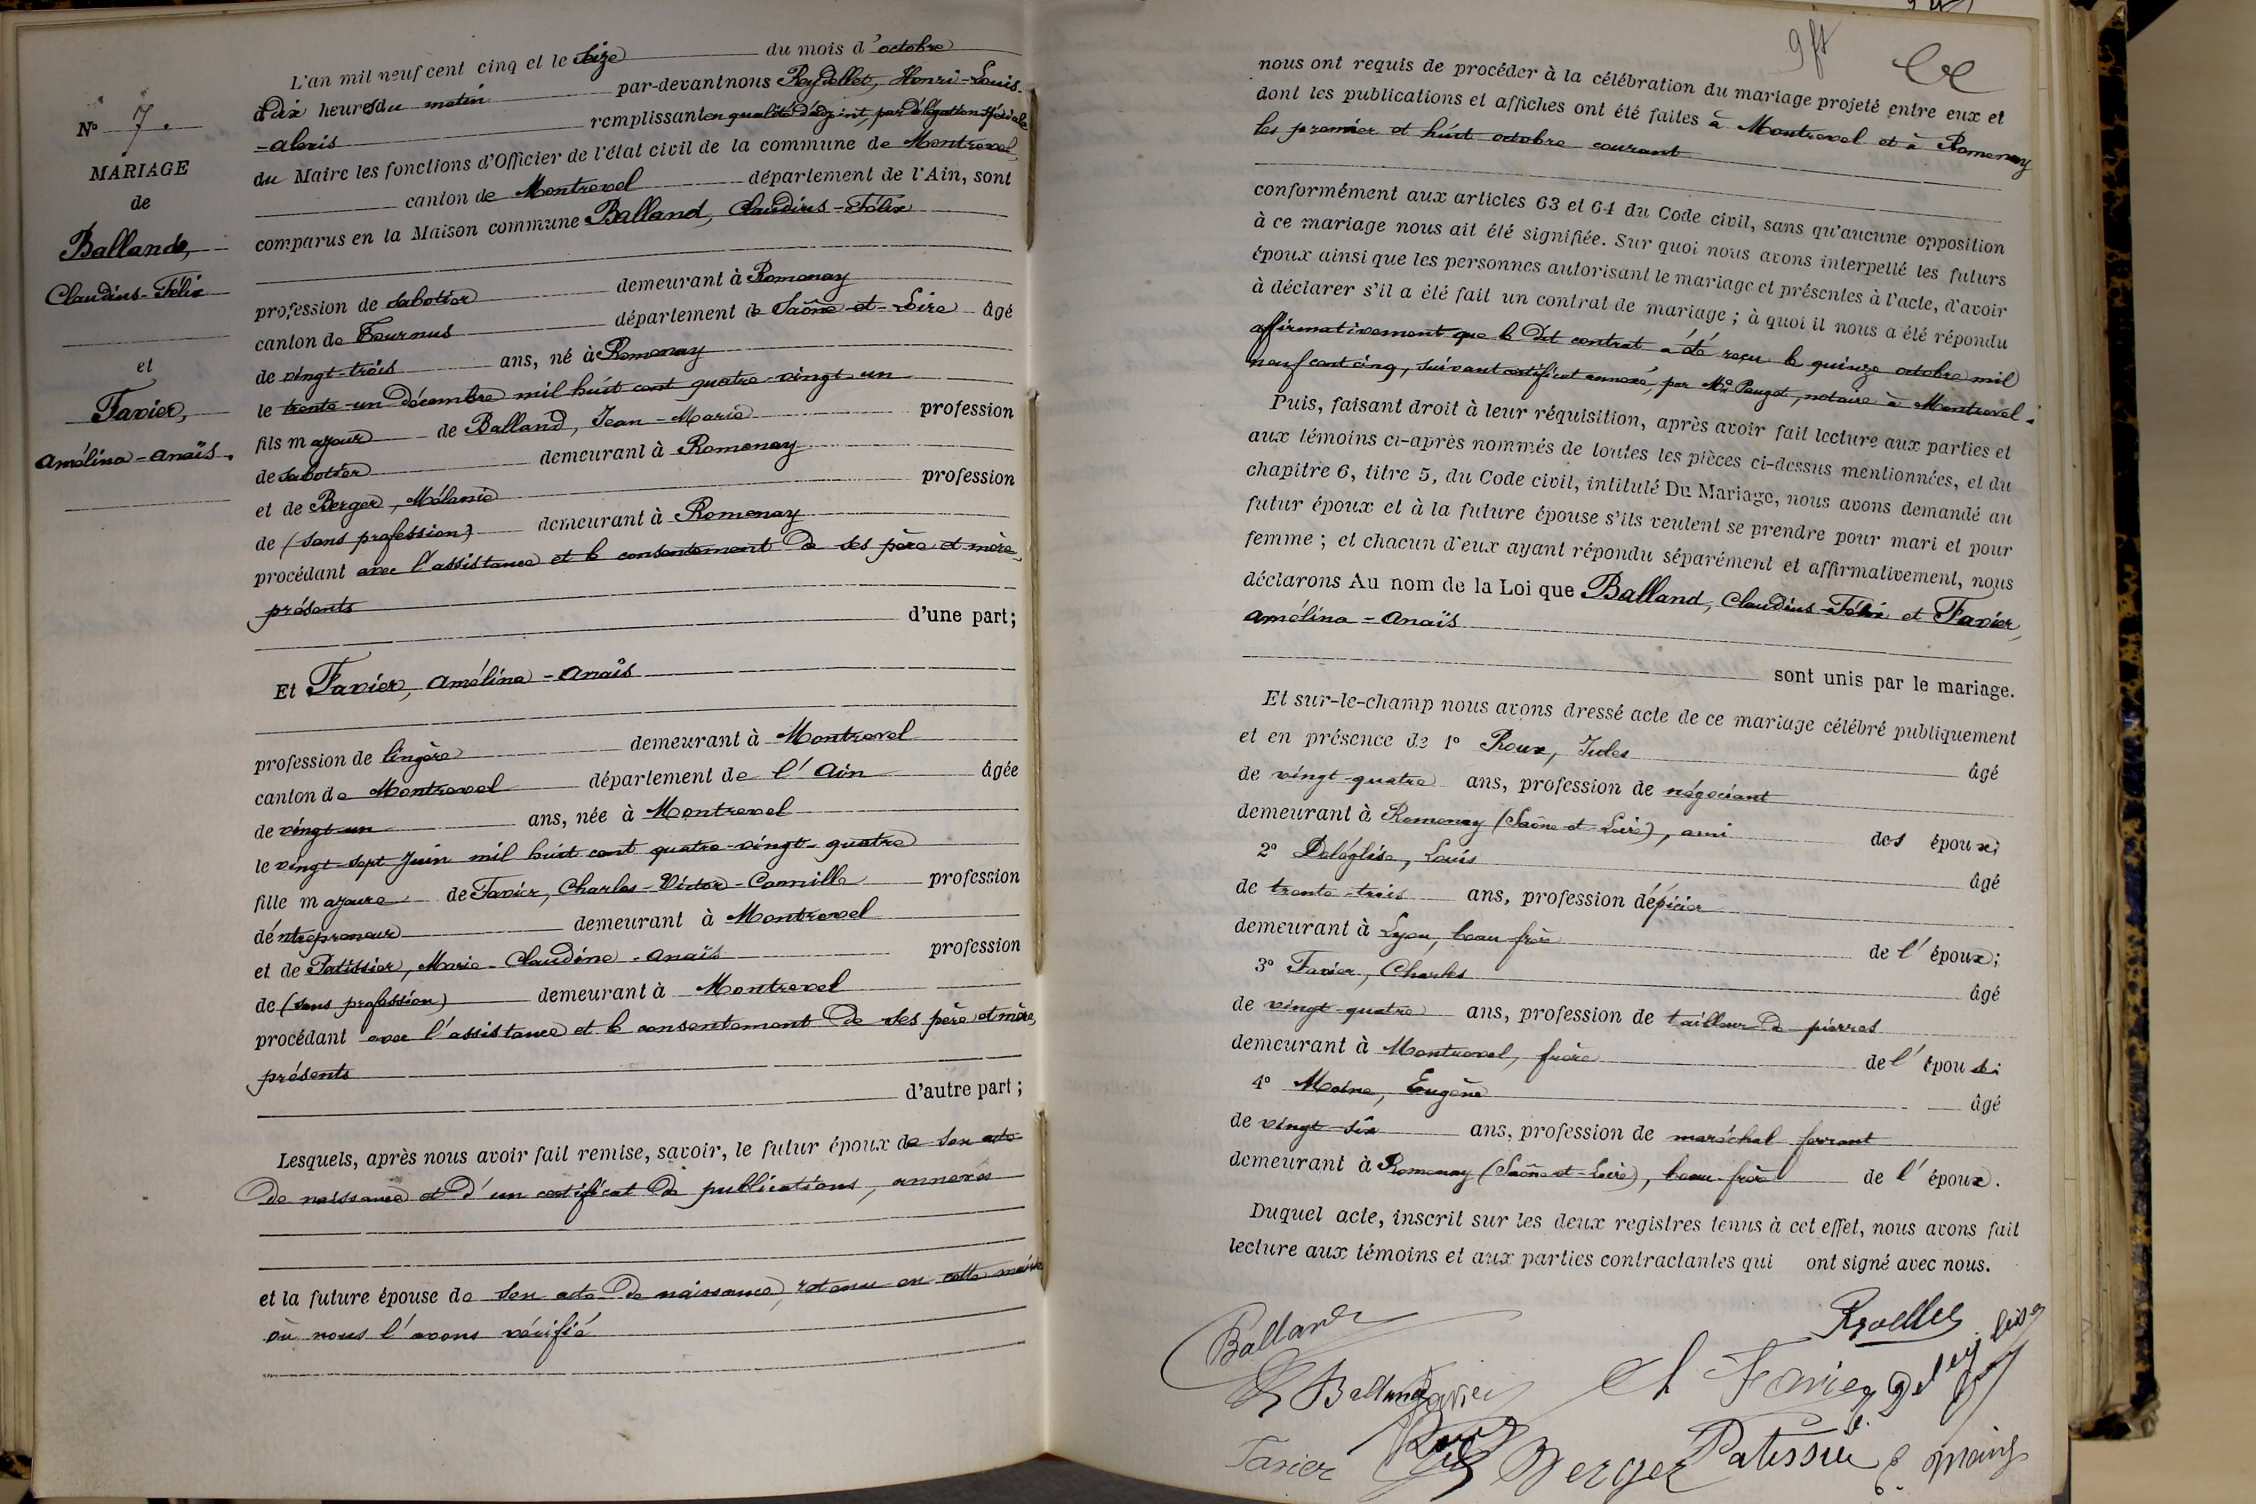 N° 7.
MARIAGE
de
Balland,
Claudius-Félix
et
Favier,
Amélina-Anaïs.
L'an mil neuf cent cinq et le seize du mois d'octobre
à dix heures du matin par-devant nous Reydellet, Henri-Louis-
-Alexis remplissant en qualité d'adjoint, par délégation spéciale
du Maire les fonctions d'Officier de l'état civil de la commune de Montrevel,
canton de Montrevel département de l'Ain, sont
comparus en la Maison commune Balland, Claudius-Félix
profession de sabotier demeurant à Romenay
canton de Tournus département de Saône-et-Loire âgé
de vingt-trois ans, né à Romenay
le trente-un décembre mil huit cent quatre-vingt-un
fils majeur de Balland, Jean-Marie profession
de sabotier demeurant à Romenay
et de Berger, Mélanie profession
de (sans profession) demeurant à Romenay
procédant avec l'assistance et le consentement de ses père et mère,
présents
d'une part;
Et Favier, Amélina-Anaïs
profession de lingère demeurant à Montrevel
canton de Montrevel département de l'Ain âgée
de vingt-un ans, née à Montrevel
le vingt-sept Juin mil huit cent quatre-vingt-quatre
fille majeure de Favier, Charles-Victor-Camille profession
d'entrepreneur demeurant à Montrevel
et de Patissier, Marie-Claudine-Anaïs profession
de (sans profession) demeurant à Montrevel
procédant avec l'assistance et le consentement de ses père et mère,
présents
d'autre part;
Lesquels, après nous avoir fait remise, savoir, le futur époux de son acte
de naissance et d'un certificat de publications, annexés
et la future épouse de son acte de naissance, retenu en cette mairie
où nous l'avons vérifié
nous ont requis de procéder à la célébration du mariage projeté entre eux et
dont les publications et affiches ont été faites à Montrevel et à Romenay
les premier et huit octobre courant
conformément aux articles 63 et 64 du Code civil, sans qu'aucune opposition
à ce mariage nous ait été signifiée. Sur quoi nous avons interpellé les futurs
époux ainsi que les personnes autorisant le mariage et présentes à l'acte, d'avoir
à déclarer s'il a été fait un contrat de mariage; à quoi il nous a été répondu
affirmativement que le dit contrat a été reçu le quinze octobre mil
neuf cent cinq, suivant certificat annexé, par Me Paugot, notaire à Montrevel.
Puis, faisant droit à leur réquisition, après avoir fait lecture aux parties et
aux témoins ci-après nommés de toutes les pièces ci-dessus mentionnées, et du
chapitre 6, titre 5, du Code civil, intitulé Du Mariage, nous avons demandé au
futur époux et à la future épouse s'ils veulent se prendre pour mari et pour
femme; et chacun d'eux ayant répondu séparément et affirmativement, nous
déclarons Au nom de la Loi que Balland, Claudius-Félix et Favier,
Amélina-Anaïs
sont unis par le mariage.
Et sur-le-champ nous avons dressé acte de ce mariage célébré publiquement
et en présence de 1° Roux, Jules âgé
de vingt-quatre ans, profession de négociant
demeurant à Romenay (Saône-et-Loire), ami des époux;
2° Deléglise, Louis âgé
de trente-trois ans, profession d'épicier
demeurant à Lyon, beau frère de l'époux;
3° Favier, Charles âgé
de vingt-quatre ans, profession de tailleur de pierres
demeurant à Montrevel, frère de l'épouse;
4° Moine, Eugène âgé
de vingt-six ans, profession de maréchal ferrant
demeurant à Romenay (Saône-et-Loire), beau-frère de l'époux.
Duquel acte, inscrit sur les deux registres tenus à cet effet, nous avons fait
lecture aux témoins et aux parties contractantes qui ont signé avec nous.
Balland
Balland Favier Ch Favier
Favier Berger Patissier E. Moine